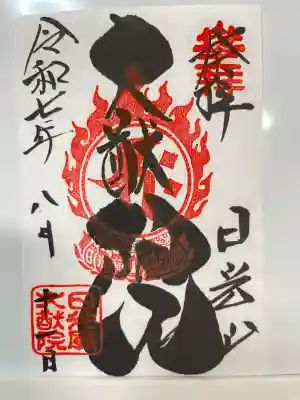 奉拝
日光山
大猷院
令和七年
八月
十一日
日光山
大猷院